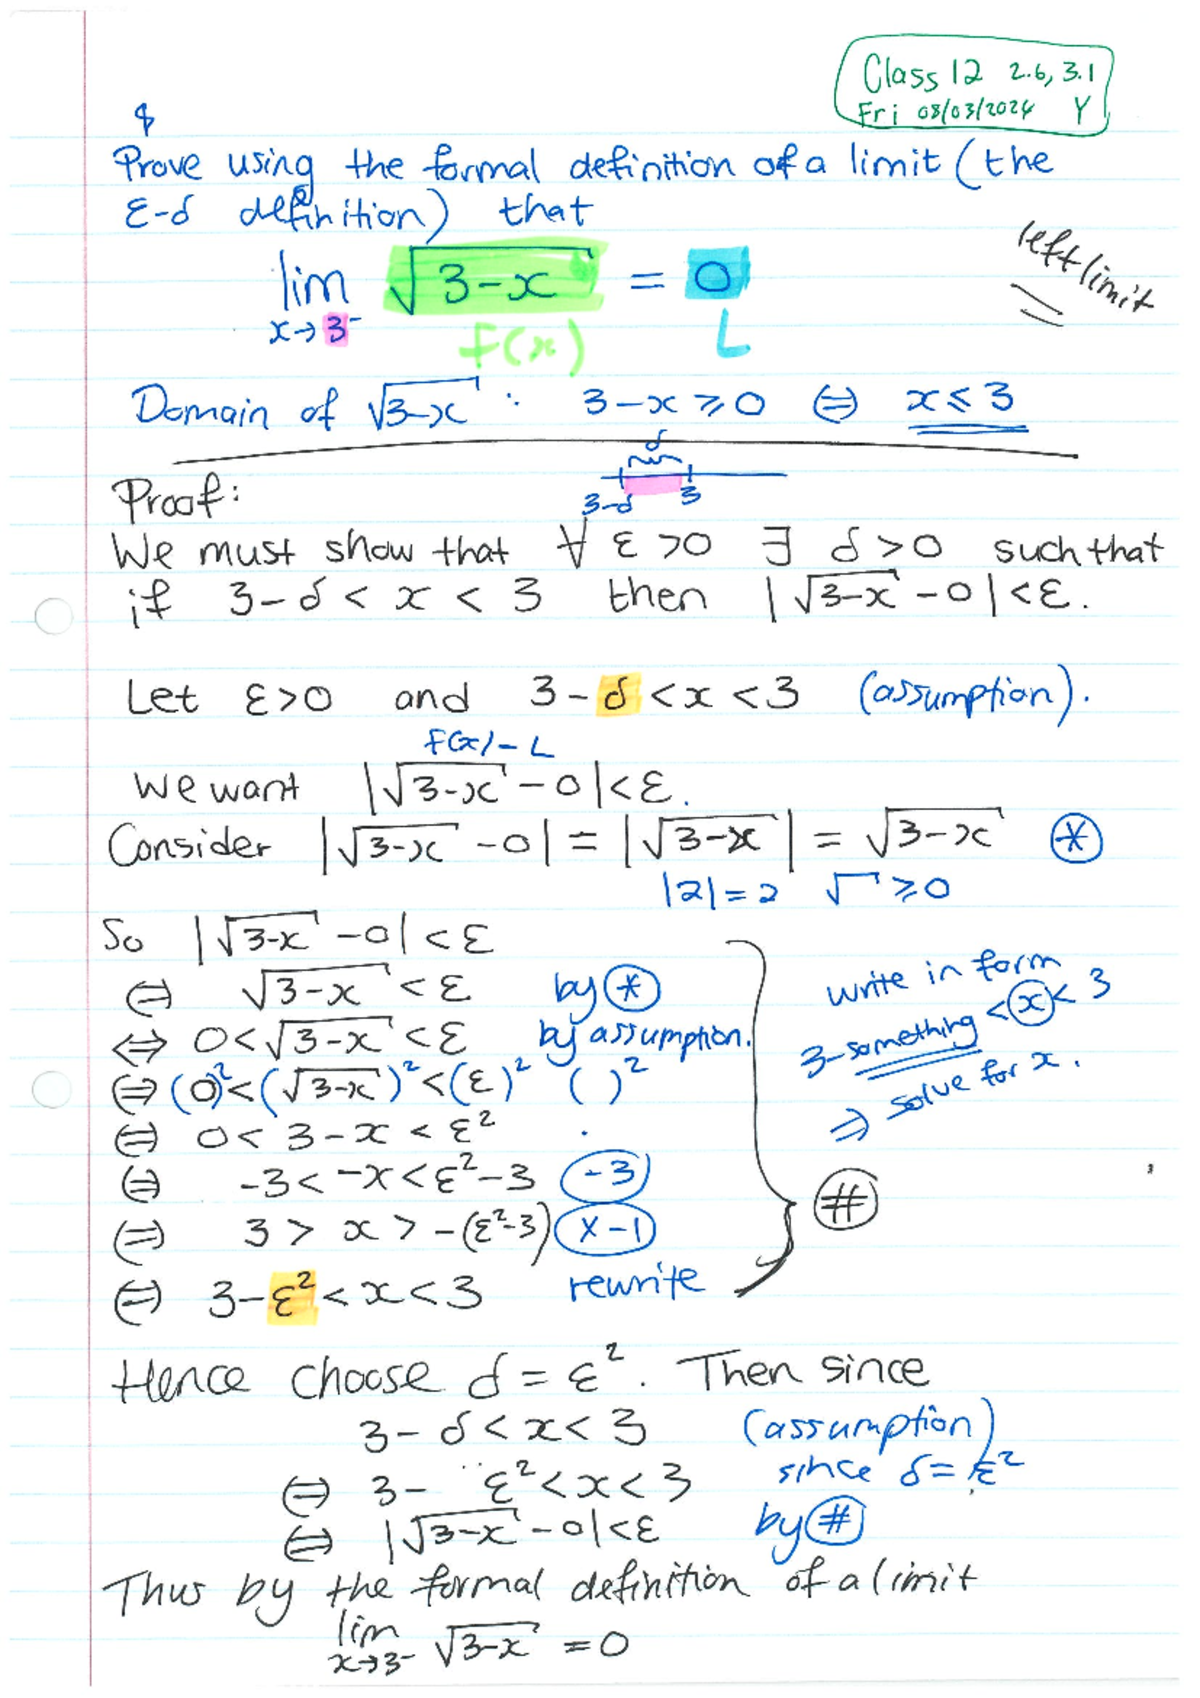 Class 12 2.6, 3.1
Fri 08/03/2024 Y
$
Prove using the formal definition of a limit (the
ε-δ definition) that
lim √(3-x) = 0
x→3⁻
f(x) L
left limit
Domain of √(3-x) : 3-x ≥ 0 ⇔ x ≤ 3
δ
3-δ 3
Proof:
We must show that ∀ ε > 0 ∃ δ > 0 such that
if 3-δ < x < 3 then |√(3-x) - 0| < ε.
Let ε > 0 and 3-δ < x < 3 (assumption).
f(x) - L
We want |√(3-x) - 0| < ε.
Consider |√(3-x) - 0| = |√(3-x)| = √(3-x) *
|2| = 2 √ ≥ 0
So |√(3-x) - 0| < ε
⇔ √(3-x) < ε by *
⇔ 0 < √(3-x) < ε by assumption.
⇔ (0)² < (√(3-x))² < (ε)² ( )²
⇔ 0 < 3-x < ε²
⇔ -3 < -x < ε²-3 -3
⇔ 3 > x > -(ε²-3) x-1
⇔ 3-ε² < x < 3 rewrite
write in form
3-something < x < 3
⇒ solve for x.
#
Hence choose δ = ε². Then since
3-δ < x < 3 (assumption)
⇔ 3- ε² < x < 3 since δ = ε²
⇔ |√(3-x) - 0| < ε by #
Thus by the formal definition of a limit
lim √(3-x) = 0
x→3⁻